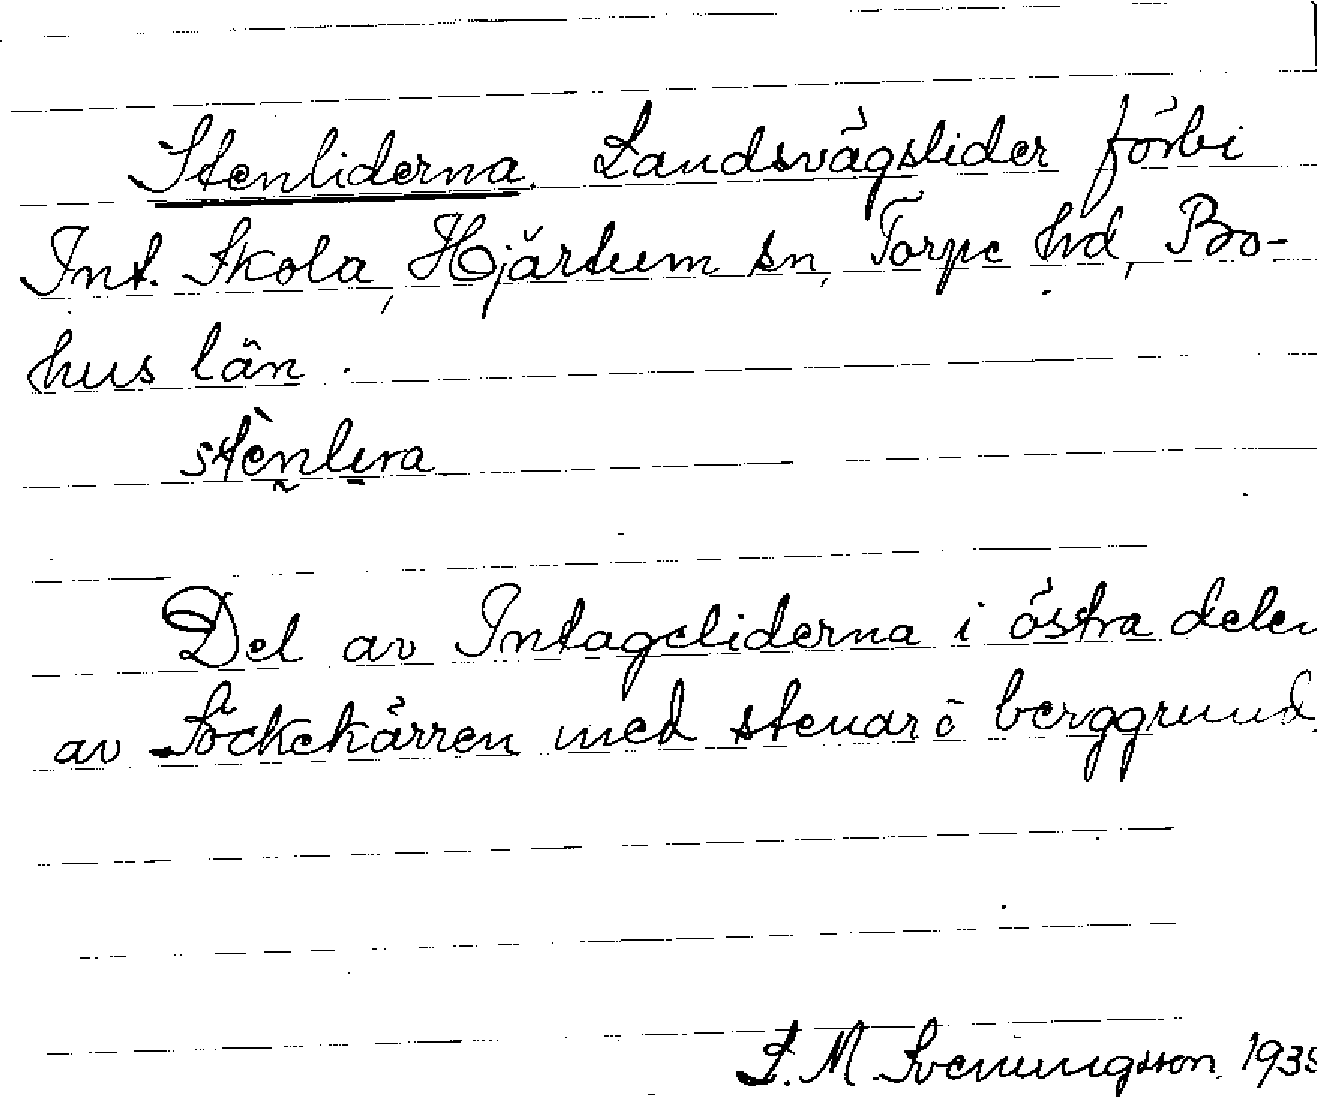 Stenliderna. Landsvägslider förbi
Int. Skola, Hjärtum sn, Torpe hd, Bo-
hus län.
stènlıra
Del av Intageliderna i östra delen
av Söckekärren med stenar o berggrund.
S. M. Svenungsson